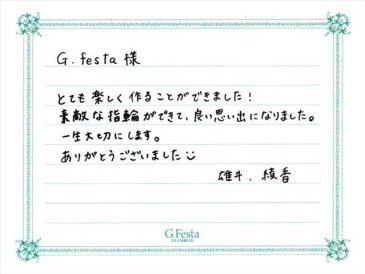 G.festa 様
とても楽しく作ることができました!
素敵な指輪ができて、良い思い出になりました。
一生大切にします。
ありがとうございました
雄斗、綾香
G.Festa